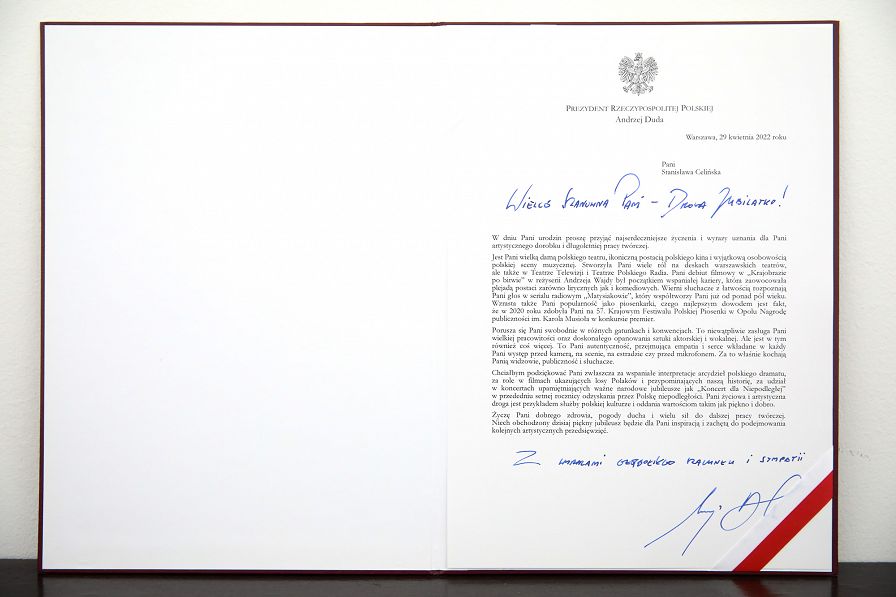 PREZYDENT RZECZYPOSPOLITEJ POLSKIEJ
Andrzej Duda
Warszawa, 29 kwietnia 2022 roku
Pani
Stanisława Celińska
Wielce Szanowna Pani – Droga Jubilatko!
W dniu Pani urodzin proszę przyjąć najserdeczniejsze życzenia i wyrazy uznania dla Pani
artystycznego dorobku i długoletniej pracy twórczej.
Jest Pani wielką damą polskiego teatru, ikoniczną postacią polskiego kina i wyjątkową osobowością
polskiej sceny muzycznej. Stworzyła Pani wiele ról na deskach warszawskich teatrów,
ale także w Teatrze Telewizji i Teatrze Polskiego Radia. Pani debiut filmowy w „Krajobrazie
po bitwie” w reżyserii Andrzeja Wajdy był początkiem wspaniałej kariery, która zaowocowała
plejadą postaci zarówno lirycznych jak i komediowych. Wierni słuchacze z łatwością rozpoznają
Pani głos w serialu radiowym „Matysiakowie”, który współtworzy Pani już od ponad pół wieku.
Wzrasta także Pani popularność jako piosenkarki, czego najlepszym dowodem jest fakt,
że w 2020 roku zdobyła Pani na 57. Krajowym Festiwalu Polskiej Piosenki w Opolu Nagrodę
publiczności im. Karola Musioła w konkursie premier.
Porusza się Pani swobodnie w różnych gatunkach i konwencjach. To niewątpliwie zasługa Pani
wielkiej pracowitości oraz doskonałego opanowania sztuki aktorskiej i wokalnej. Ale jest w tym
również coś więcej. To Pani autentyczność, przejmująca empatia i serce wkładane w każdy
Pani występ przed kamerą, na scenie, na estradzie czy przed mikrofonem. Za to właśnie kochają
Panią widzowie, publiczność i słuchacze.
Chciałbym podziękować Pani zwłaszcza za wspaniałe interpretacje arcydzieł polskiego dramatu,
za role w filmach ukazujących losy Polaków i przypominających naszą historię, za udział
w koncertach upamiętniających ważne narodowe jubileusze jak „Koncert dla Niepodległej”
w przededniu setnej rocznicy odzyskania przez Polskę niepodległości. Pani życiowa i artystyczna
droga jest przykładem służby polskiej kulturze i oddania wartościom takim jak piękno i dobro.
Życzę Pani dobrego zdrowia, pogody ducha i wielu sił do dalszej pracy twórczej.
Niech obchodzony dzisiaj piękny jubileusz będzie dla Pani inspiracją i zachętą do podejmowania
kolejnych artystycznych przedsięwzięć.
Z wyrazami głębokiego szacunku i sympatii